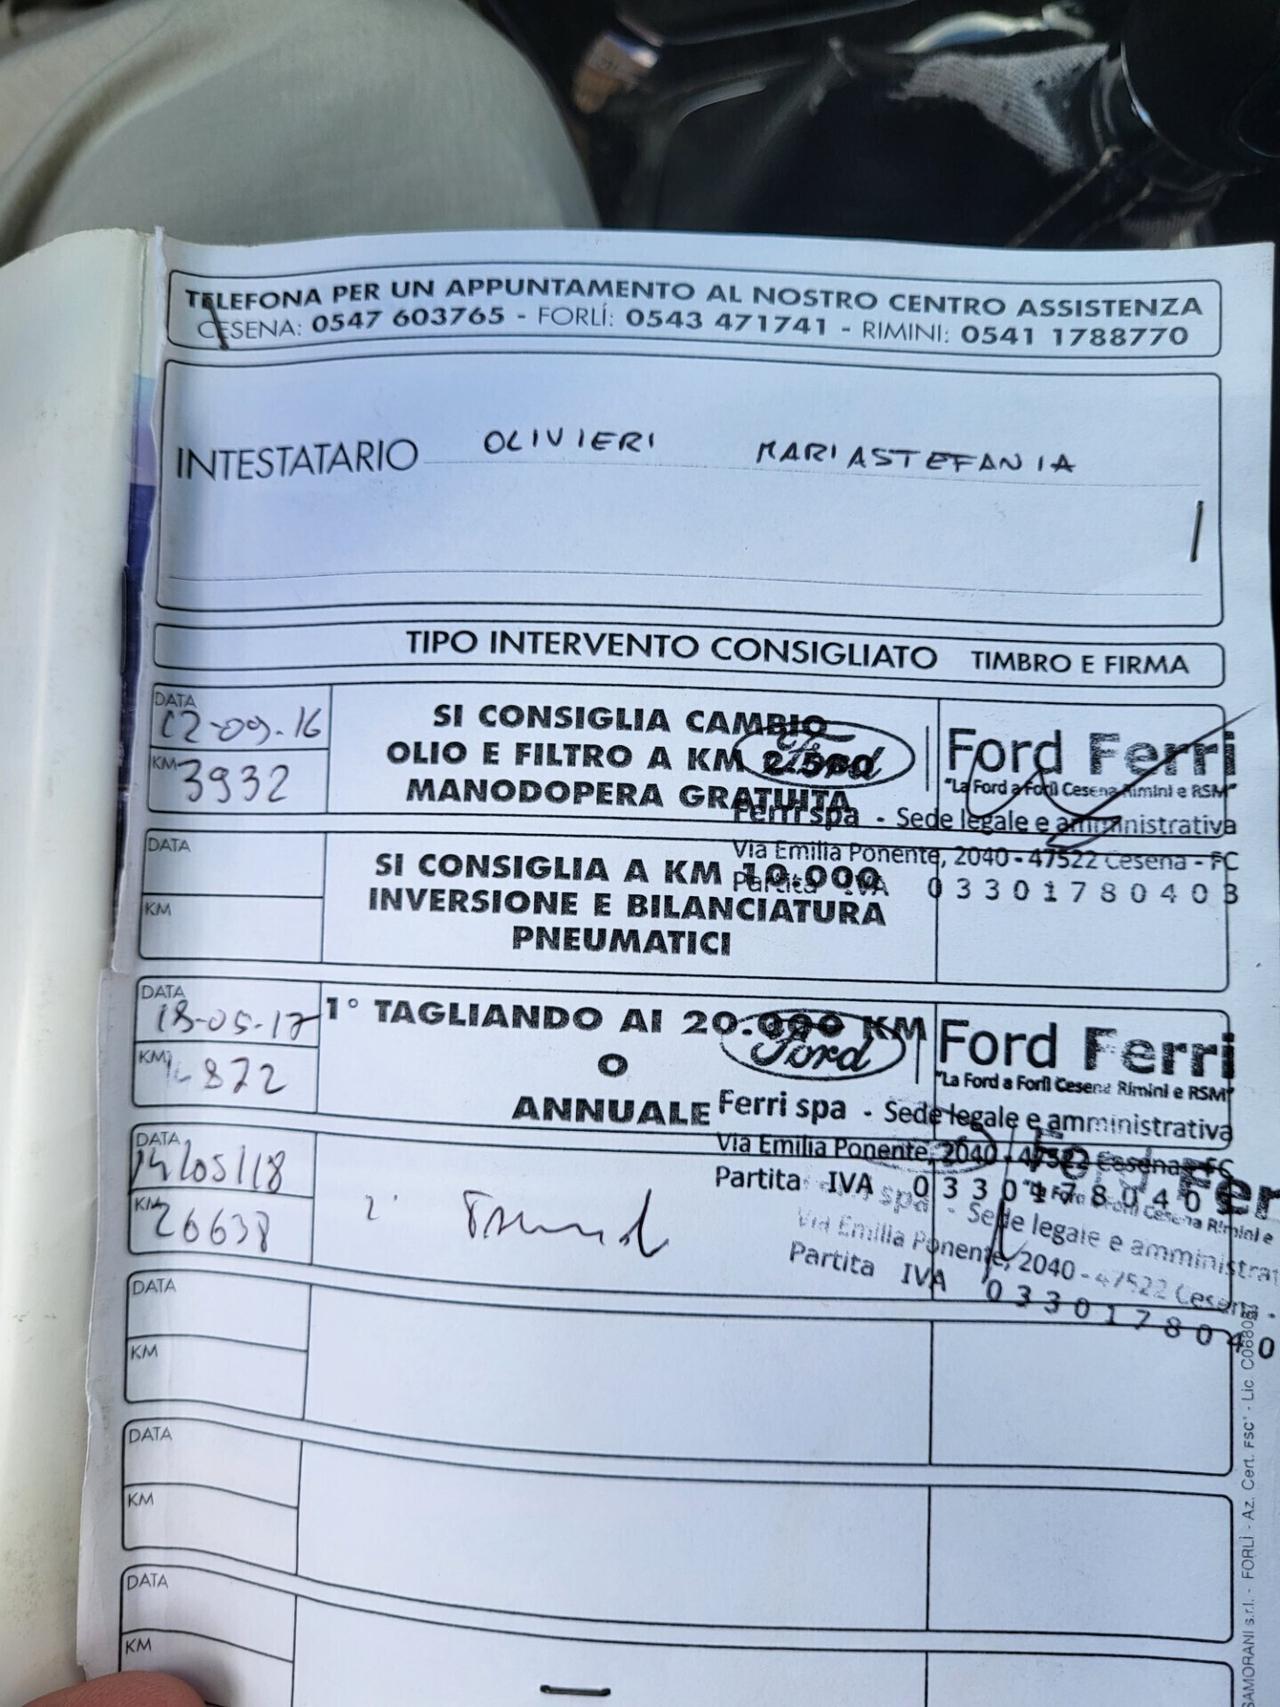 TELEFONA PER UN APPUNTAMENTO AL NOSTRO CENTRO ASSISTENZA
CESENA: 0547 603765 - FORLÌ: 0543 471741 - RIMINI: 0541 1788770
INTESTATARIO OLIVIERI MARIASTEFANIA
TIPO INTERVENTO CONSIGLIATO TIMBRO E FIRMA
DATA
12-09-16
KM
3932
SI CONSIGLIA CAMBIO
OLIO E FILTRO A KM 2.500
MANODOPERA GRATUITA
Ford
Ford Ferri
"La Ford a Forlì Cesena Rimini e RSM"
Ferri spa - Sede legale e amministrativa
Via Emilia Ponente, 2040 - 47522 Cesena - FC
Partita IVA 03301780403
DATA
KM
SI CONSIGLIA A KM 10.000
INVERSIONE E BILANCIATURA
PNEUMATICI
DATA
18-05-17
KM
872
1° TAGLIANDO AI 20.000 KM
O
ANNUALE
Ford
Ford Ferri
"La Ford a Forlì Cesena Rimini e RSM"
Ferri spa - Sede legale e amministrativa
Via Emilia Ponente, 2040 - 47522 Cesena - FC
Partita IVA 0330178040
DATA
14/05/18
KM
26638
Ford Fer
Forlì Cesena Rimini e
spa - Sede legale e amministrat
Via Emilia Ponente, 2040 - 47522 Cesena -
Partita IVA 0330178040
DATA
KM
DATA
KM
DATA
KM
SAMORANI s.r.l. - FORLÌ - Az. Cert. FSC® - Lic.